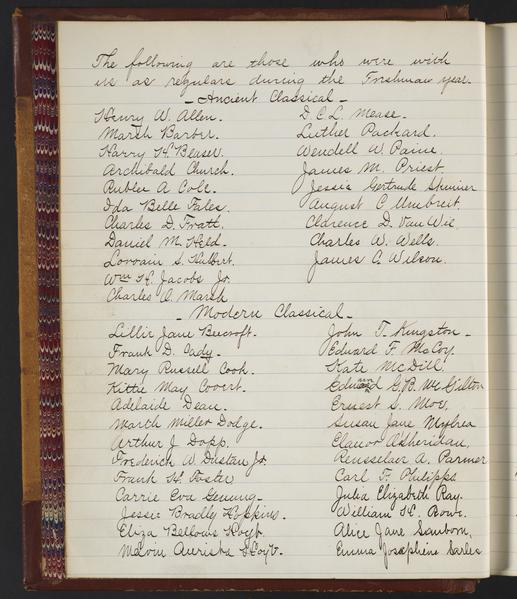 The following are those who were with
us as regulars during the Freshman year.
- Ancient Classical -
Henry W. Allen.
Marsh Barber.
Harry H. Beaser.
Archibald Church.
A. Cole.
Ida Belle Fales.
Charles D. Fratt.
Daniel M. Held.
Lorrain S. Hulbert.
Wm H. Jacobs Jr.
Charles C. Marsh
D. C. L. Mease.
Luther Packard.
Wendell W. Paine.
James M. Priest.
Jessie Gertrude
August C. Umbreit.
Clarence D. Van Wie.
Charles W. Wells.
James C. Wilson.
- Modern Classical -
Lillie Jane Beecroft.
Frank D. Cady.
Mary Russell Cook.
Kittie May Covert.
Adelaide Dean.
Miller Dodge.
Arthur J. Dopp.
Frederick W. Dustan Jr.
Frank H. Foster
Carrie Eva Genung -
Jessie Bradly
Eliza Bellows Hoyt.
Hoyt.
John T. Kingston -
Edward F. McCoy.
Kate McDill
G. B. McGilton
Ernest S. Moe.
Susan Jane Mybrea
Rensselaer A. Parmer
Carl F. Philipps
Julia Elizabeth Ray.
William H. Rowe.
Alice Jane Sanborn.
Emma Josephine Sarles